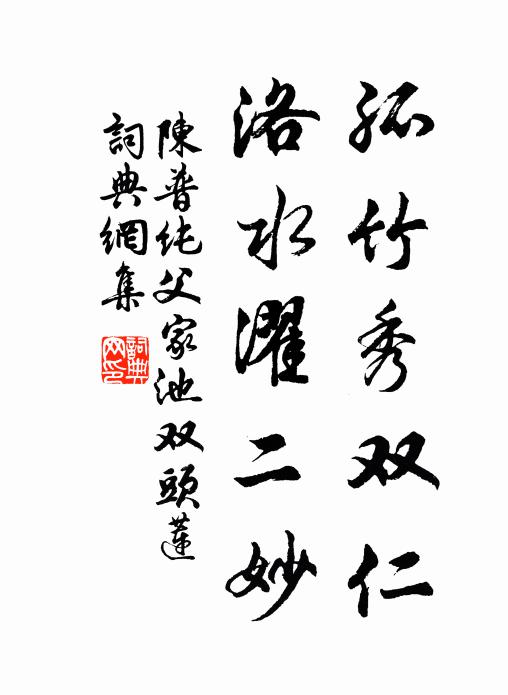 孤竹秀双仁
洛水濯二妙
陳普純父家池双頭蓮
詞典網集
詞典网印